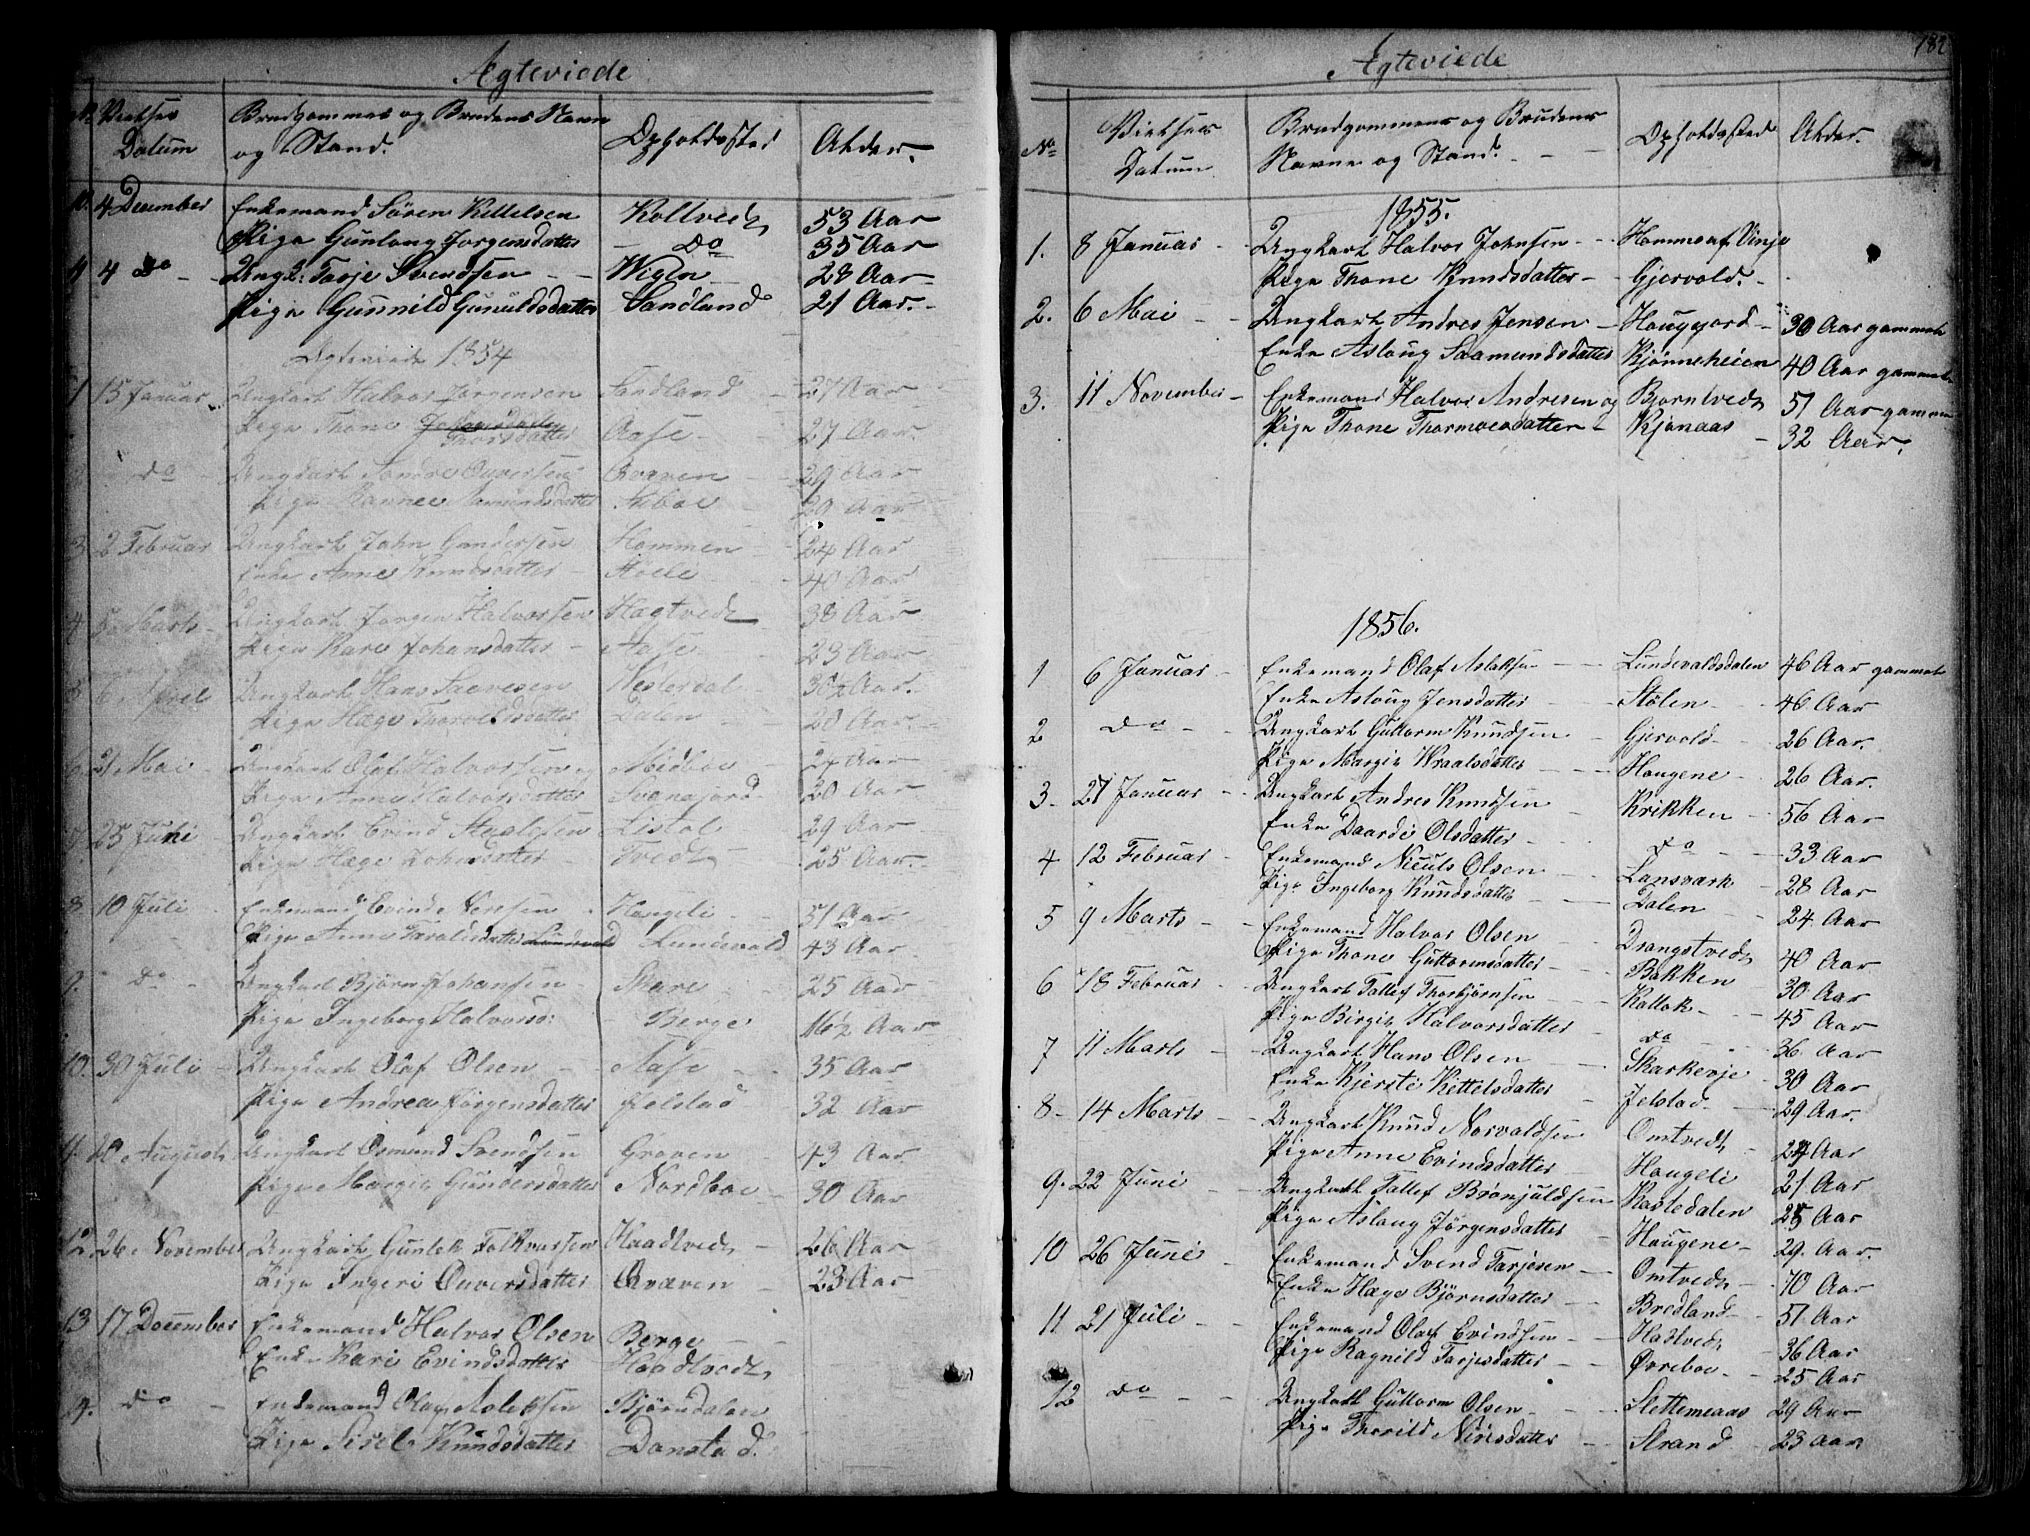 Ægteviede
No Vielses Datum
Brudgommens og Brudens Navn og Stand.
Opholdssted
Alder.
10. 4 December Enkemand Søren Kittelsen Holtvedt 53 Aar
Pige Gunlaug Jørgensdatter Do 35 Aar
4 Do Ungk: Tarje Svendsen 28 Aar
Pige Gunnild Gunuldsdatter Sandland 21 Aar.
Ægteviede 1854
1 15 Januar Ungkarl Halvor Jørgensen Sandland 27 Aar
Pige Thone Thorsdatter Aase 27 Aar.
Do Ungkarl 29 Aar
Pige 29 Aar
3 2 Februar Ungkarl John Gundersen Hommen 24 Aar
Enke Anne Knudsdatter 40 Aar
4 Marts Ungkarl Jørgen Halvorsen Hagtvedt 38 Aar
Pige Kare Johansdatter Aase 23 Aar
5 6 April Ungkarl Hans Saavesen Vesterdal 30½ Aar.
Pige Hæge Dalen 20 Aar
6 21 Mai Ungkarl Olaf Halvorsen Midboe Aar
Pige Anne Halvorsdatter 20 Aar
7. 25 Juni Ungkarl Evind Listøl 29 Aar
Pige Hæge Johnsdatter Tvedt 25 Aar.
8. 10 Juli Enkemand Evind Haugeli 51 Aar
Pige Anne Lundevald 43 Aar
9. Do Ungkarl Bjørn Johansen Skare 25 Aar
Pige Ingeborg Halvorsd: Berge 16½ Aar
10. 30 Juli Ungkarl Olaf Olsen Aase 35 Aar
Pige Andrea Jørgensdatter Jelstad 32 Aar
11. 10 August Ungkarl Osmund Svendsen Groven 43 Aar
Pige Margit Gundersdatter Nordboe 30 Aar
12. 26 November Ungkarl Gunlek Folkvarsen Haadtvedt 26 Aar
Pige Ingeri Ouversdatter Qvæven 23 Aar
13 17 December Enkemand Halvor Olsen Berge
Enke Kari Evindsdatter Haadtvedt
Do Enkemand Olaf Aslaksen Bjørndalen
Pige Sisel Knudsdatter Danstad.
182
Ægteviede
No Vielsens Datum
Brudgommens og Brudens Navne og Stand.
Opholdssted
Alder.
1855.
1. 8 Januar Ungkarl Halvor Johnsen Homme af Vinje
Pige Thone Knudsdatter Gjervold.
2. 6 Mai Ungkarl Andres Jensen Hougejord 30 Aar gammel
Enke Aslaug Saamundsdatter Kjønneheien 40 Aar gammel
3. 11 November Enkemand Halvor Andresen og Bjørntvedt 51 Aar gammel
Pige Thone Thormoesdatter Kjønaas 32 Aar.
1856.
1 6 Januar Enkemand Olaf Aslaksen Lundevaldsdalen 46 Aar gammel
Enke Aslaug Jensdatter Stølen 46 Aar
2 Do Ungkarl Guttorm Knudsen Gjervold 26 Aar.
Pige Margit Wraalsdatter Haugene 26 Aar.
3. 27 Januar Ungkarl Andres Knudsen Krikken 56 Aar
Enke Daardi Olsdatter Do 33 Aar
4 12 Februar Enkemand Niculs Olsen Lansværk 28 Aar
Pige Ingeborg Knudsdatter Dalen 24 Aar
5 9 Marts Enkemand Halvor Olsen Drangstvedt 40 Aar
Pige Thone Guttormsdatter Bakken 30 Aar
6 18 Februar Ungkarl Tallef Thorbjørnsen Kallak 45 Aar
Pige Birgit Halvorsdatter Do 36 Aar
7 11 Marts Ungkarl Hans Olsen Skarkevje 30 Aar
Enke Kjersti Kittelsdatter Jelstad 29 Aar.
8 14 Marts Ungkarl Knud Norvaldsen Omtvedt 24 Aar
Pige Anne Evindsdatter Haugeli 21 Aar
9. 22 Juni Ungkarl Tallef Brønjuldsen Kastedalen 25 Aar
Pige Aslaug Jørgensdatter Haugene 29 Aar.
10 26 Juni Enkemand Svend Tarjesen Omtvedt 70 Aar
Enke Hæge Bjørnsdatter Bredland 51 Aar
11 21 Juli Enkemand Olaf Evindsen Hadtvedt 36 Aar
Pige Ragnild Tarjesdatter Øvreboe 25 Aar
12 Do Ungkarl Guttorm Olsen Slettemeaas 29 Aar
Pige Thorild Nirisdatter Strand 23 Aar